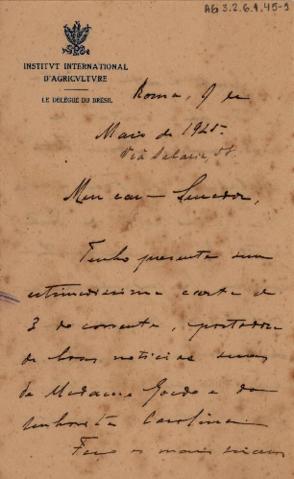 AG 3.2.6.1.45-1
INSTITVT INTERNATIONAL
D'AGRICVLTVRE
LE DÉLÉGUÉ DU BRÉSIL
Roma, 9 de
Maio de 1925.
Meu caro Senador,
Tenho presente sua
estimadissima carta de
3 do corrente, portadora
de boas noticias suas
de Madame e da
senhorita Carolina.
Faço os mais